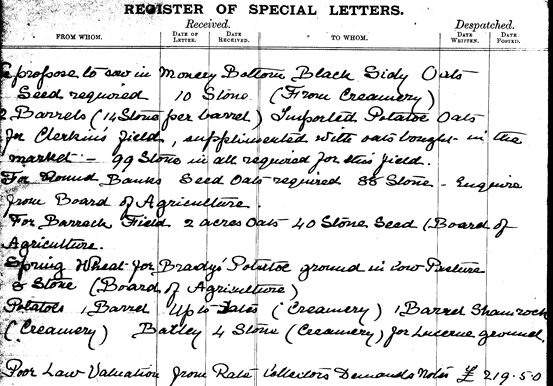 REGISTER OF SPECIAL LETTERS.
Received. Despatched.
FROM WHOM. DATE OF LETTER. DATE RECEIVED. TO WHOM. DATE WRITTEN. DATE POSTED.
propose to sow in Money Bottom Black Sidy Oats
Seed required 10 Stone (From Creamery)
2 Barrels (14 Stone per barrel) Imported Potatoe Oats
for Clerkin's field, supplimented with oats bought in the
market - 99 Stone in all required for this field.
For Round Banks Seed Oats required 88 Stone - Enquire
from Board of Agriculture.
For Barrack Field 2 acres Oats 40 Stone Seed (Board of
Agriculture.
Spring Wheat for Bradys Potatoe ground in Cow Pasture
8 Stone (Board of Agriculture)
Potatoes 1 Barrel Up to Dates (Creamery) 1 Barrel Shamrock
(Creamery) Batley 4 Stone (Creamery) for Lucerne ground.
Poor Law Valuation from Rate Collectors Demand Notes £ 219.5.0